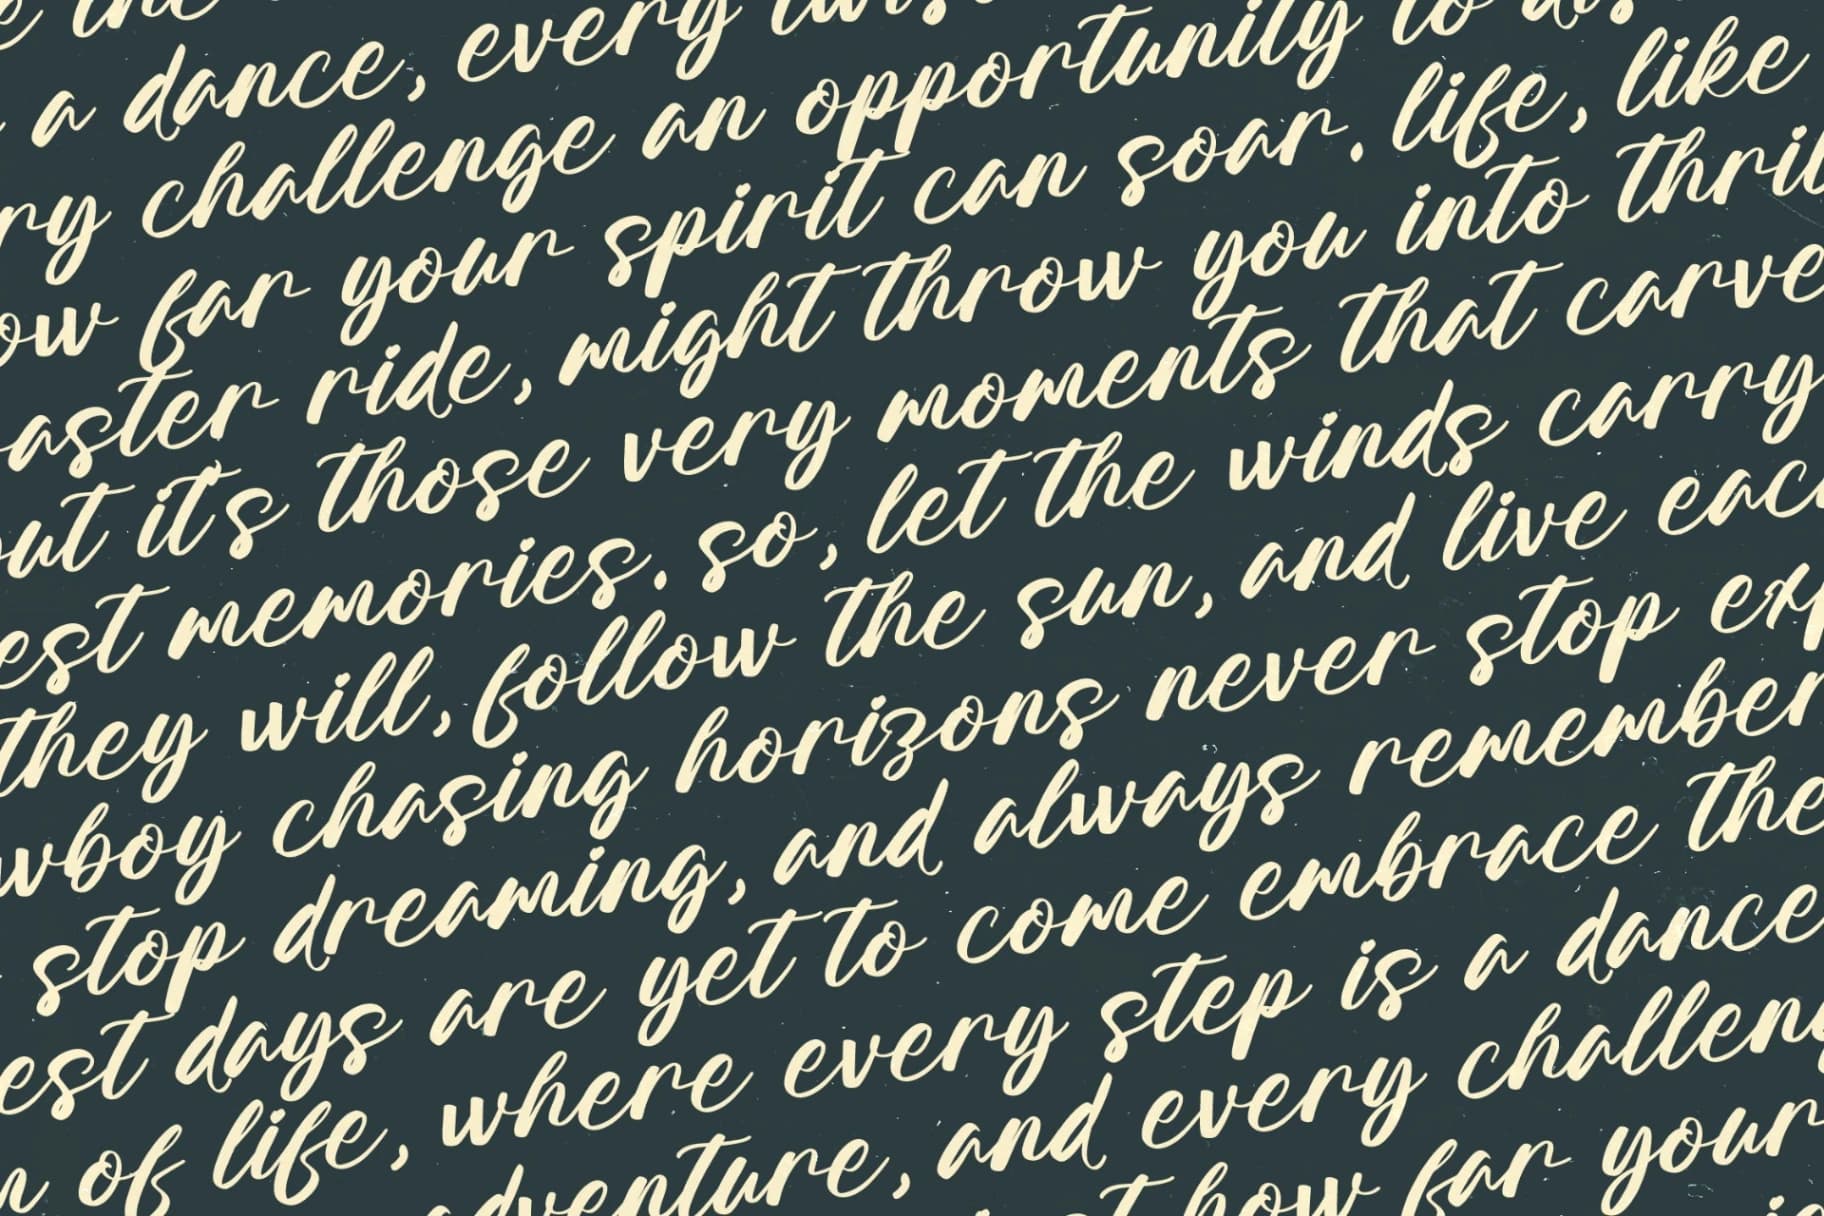 a dance, every
challenge an opportunity to
far your spirit can soar. life, like
ride, might throw you into
it's those very moments that carve
memories. so, let the winds carry
they will, follow the sun, and live
chasing horizons never stop
stop dreaming, and always remember
days are yet to come embrace the
of life, where every step is a dance
and every
how far your